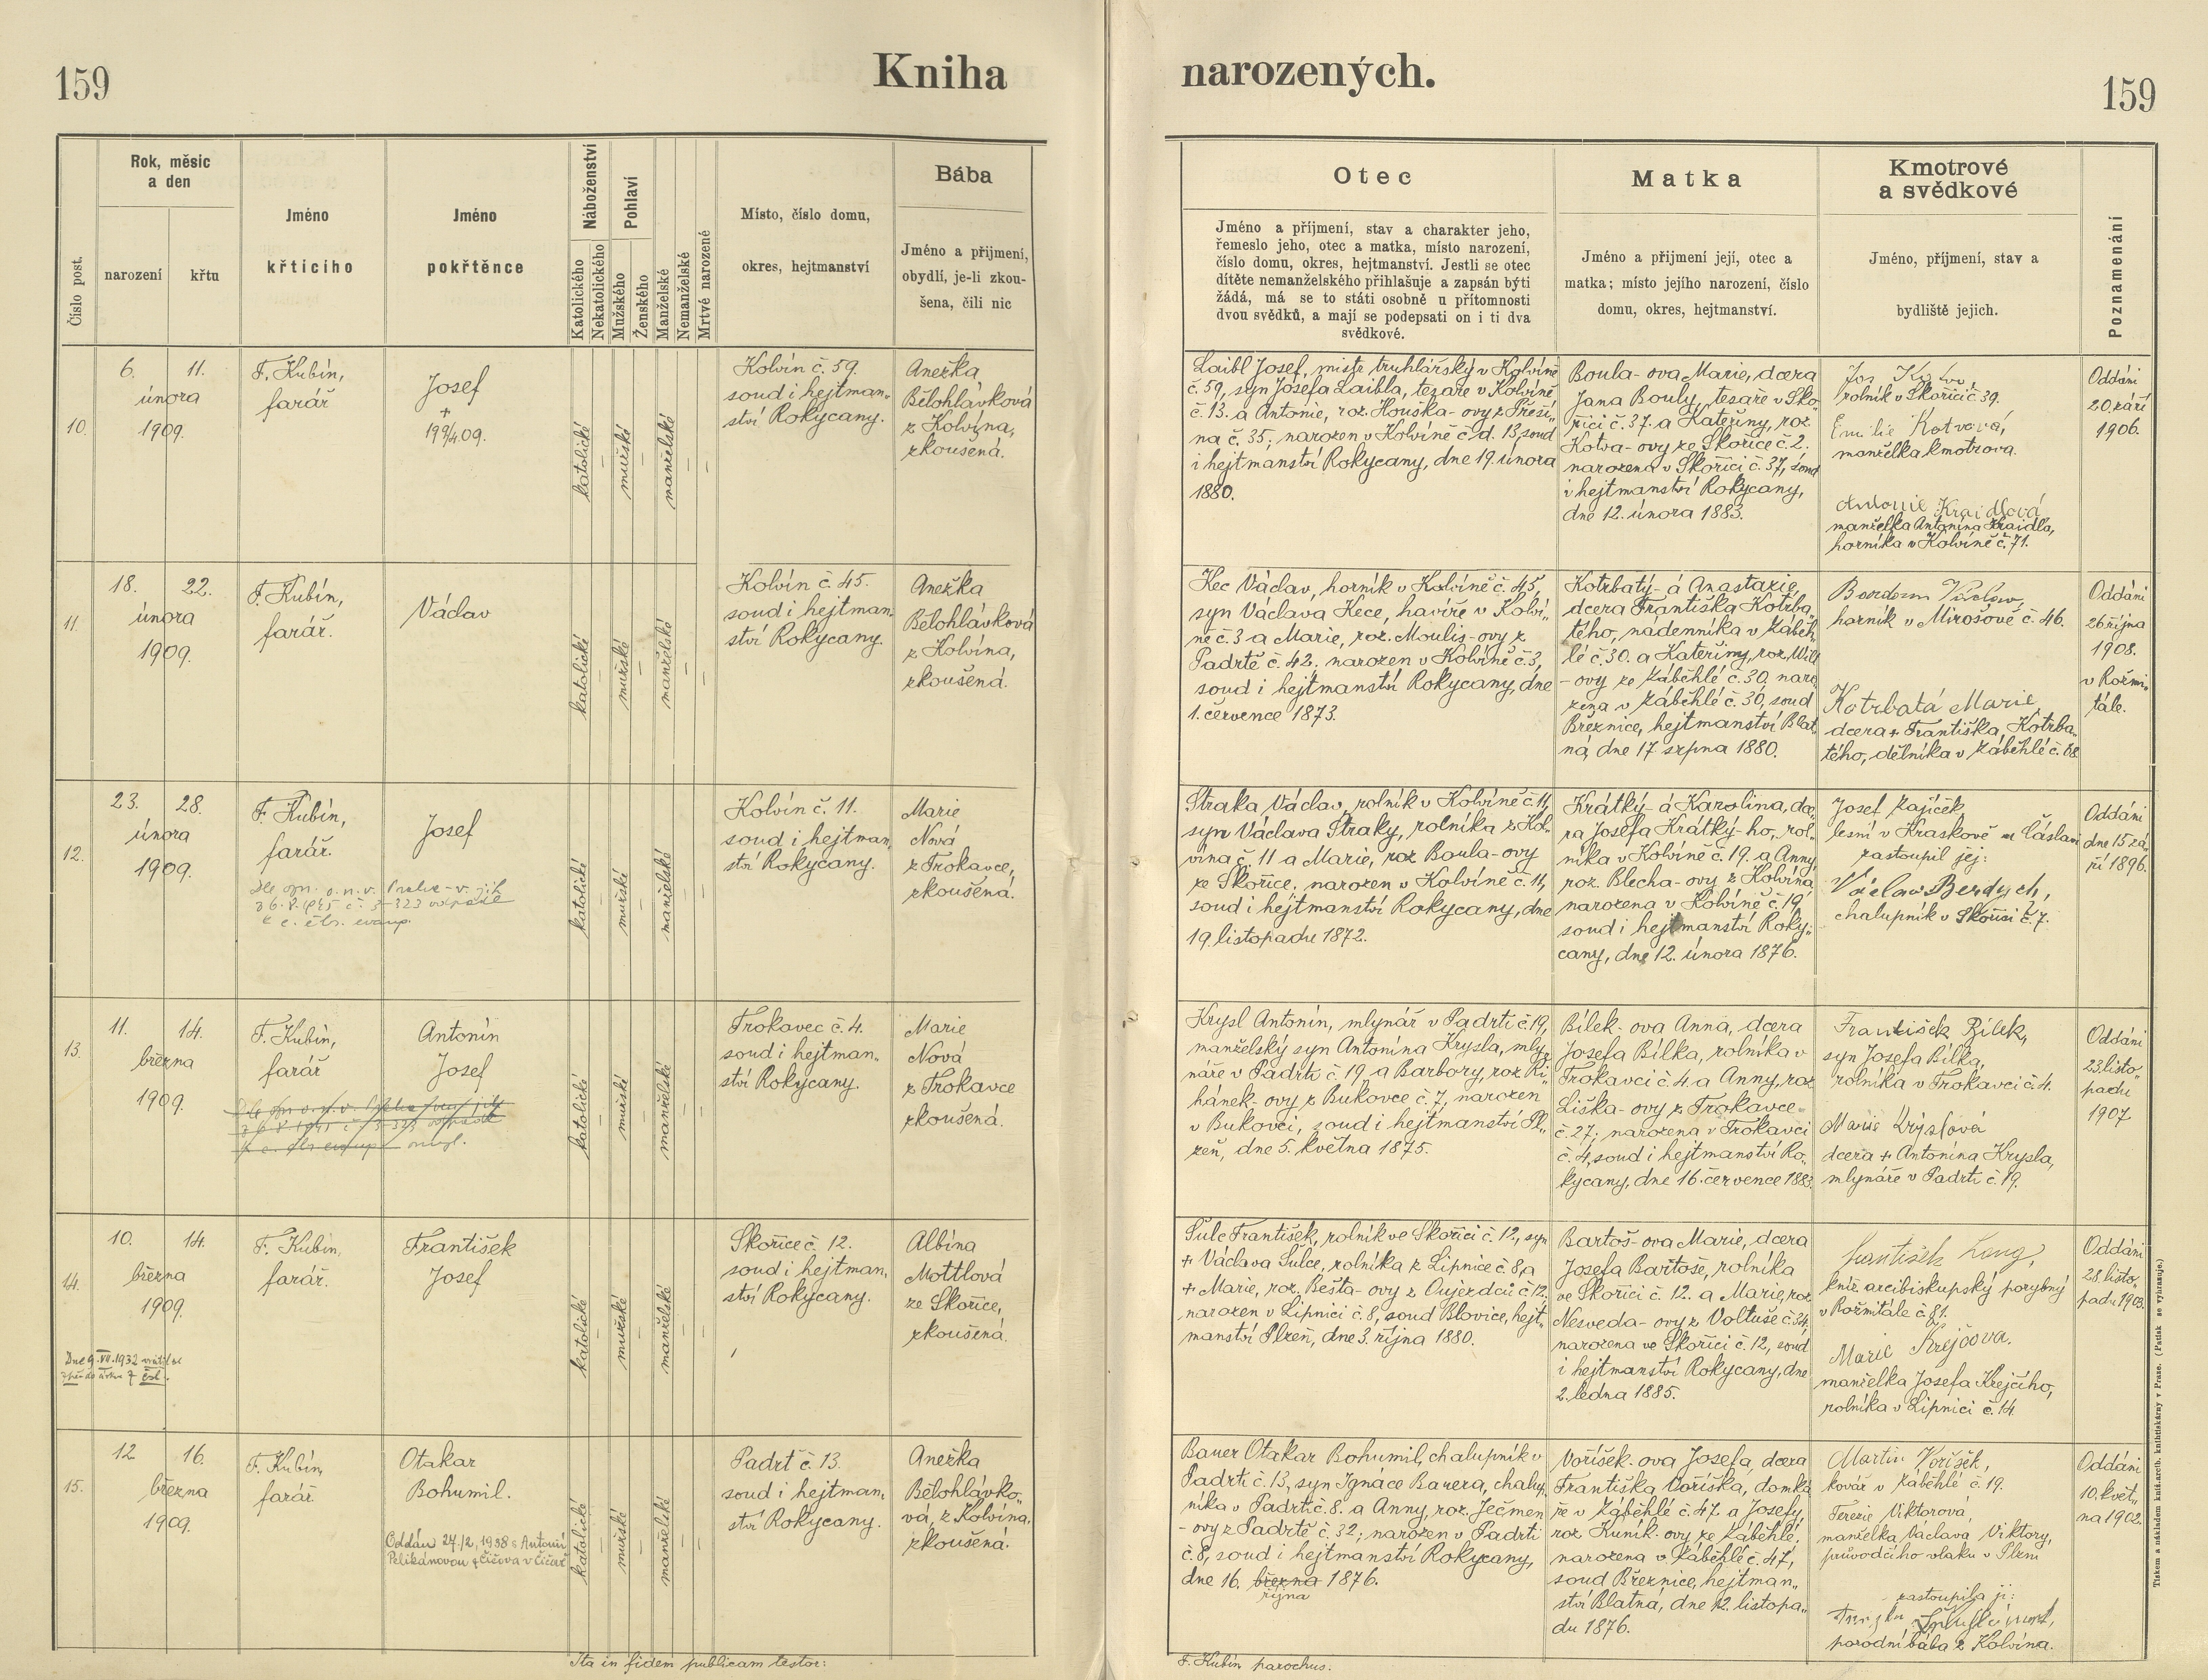 159
Kniha
narozených.
159
Číslo post.
Rok, měsíc
a den
narození
křtu
Jméno
křticího
Jméno
pokřtěnce
Náboženství
Katolického
Nekatolického
Pohlaví
Mužského
Ženského
Manželské
Nemanželské
Mrtvé narozené
Místo, číslo domu,
okres, hejtmanství
Bába
Jméno a přijmení,
obydlí, je-li zkou-
šena, čili nic
Otec
Jméno a příjmení, stav a charakter jeho,
řemeslo jeho, otec a matka, místo narození,
číslo domu, okres, hejtmanství. Jestli se otec
dítěte nemanželského přihlašuje a zapsán býti
žádá, má se to státi osobně u přítomnosti
dvou svědků, a mají se podepsati on i ti dva
svědkové.
Matka
Jméno a přijmení její, otec a
matka; místo jejího narození, číslo
domu, okres, hejtmanství.
Kmotrové
a svědkové
Jméno, příjmení, stav a
bydliště jejich.
Poznamenání
10.
6. 11.
února
1909.
F. Kubín,
farář
Josef
+
19 9/4 09.
katolické
–
mužské
–
manželské
–
–
Kolvín č. 59.
soud i hejtman-
ství Rokycany.
Anežka
Bělohlávková
z Kolvína,
zkoušená.
Laibl Josef, mistr truhlářský v Kolvíně
č. 59, syn Josefa Laibla, tesaře v Kolvíně
č. 13. a Antonie, roz. Houška-ovy z Přeší-
na č. 35; narozen v Kolvíně č. d. 13, soud
i hejtmanství Rokycany, dne 19. února
1880.
Boula-ova Marie, dcera
Jana Bouly, tesaře v Sko-
řici č. 37. a Kateřiny, roz.
Kotva-ovy ze Skořice č. 2.
narozena v Skořici č. 37, soud
i hejtmanství Rokycany,
dne 12. února 1883.
Jos. Kotva,
rolník v Skořici č. 39.
Emilie Kotvová,
manželka kmotrova.
Antonie Kraidlová
manželka Antonína Kraidla,
horníka v Kolvíně č. 71.
Oddáni
20. září
1906.
11.
18. 22.
února
1909.
F. Kubín,
farář.
Václav
katolické
–
mužské
–
manželské
–
–
Kolvín č. 45.
soud i hejtman-
ství Rokycany.
Anežka
Bělohlávková
z Kolvína,
zkoušená.
Kec Václav, horník v Kolvíně č. 45,
syn Václava Kece, havíře v Kolví-
ně č. 3 a Marie, roz. Moulis-ovy z
Padrtě č. 42; narozen v Kolvíně č. 3,
soud i hejtmanství Rokycany, dne
1. července 1873.
Kotrbatý-á Anastazie,
dcera Františka Kotrba-
tého, nádenníka v Záběh-
lé č. 30. a Kateřiny, roz. Will
-ovy ze Záběhlé č. 30, naro
zena v Záběhlé č. 30, soud
Březnice, hejtmanství Blat
ná, dne 17. srpna 1880.
Václav,
horník v Mirošově č. 46.
Kotrbatá Marie,
dcera + Františka Kotrba-
tého, dělníka v Záběhlé č. 68
Oddáni
26. října
1908.
v Rožmi-
tále.
12.
23. 28.
února
1909.
F. Kubín,
farář.
Josef
katolické
–
mužské
–
manželské
–
–
Kolvín č. 11.
soud i hejtman-
ství Rokycany.
Marie
Nová
z Trokavce,
zkoušená.
Straka Václav, rolník v Kolvíně č. 11,
syn Václava Straky, rolníka z Kol-
vína č. 11 a Marie, roz. Boula-ovy
ze Skořice; narozen v Kolvíně č. 11,
soud i hejtmanství Rokycany, dne
19. listopadu 1872.
Krátký-á Karolina, dce-
ra Josefa Krátký-ho, rol-
níka v Kolvíně č. 19. a Anny,
roz. Blecha-ovy z Kolvína,
narozena v Kolvíně č. 19,
soud i hejtmanství Roky-
cany, dne 12. února 1876.
Josef Zajíček
lesní v Kraskově u Čáslavi
zastoupil jej:
Václav Berdych,
chalupník v Skořici č. 7.
Oddáni
dne 15. zá-
ří 1896.
13.
11. 14.
března
1909.
F. Kubín,
farář
Antonín
Josef
katolické
–
mužské
–
manželské
–
–
Trokavec č. 4.
soud i hejtman-
ství Rokycany.
Marie
Nová
z Trokavce
zkoušená.
Krysl Antonín, mlynář v Padrti č. 19,
manželský syn Antonína Krysla, mly-
náře v Padrti č. 19 a Barbory, roz. Ri-
hánek-ovy z Bukovce č. 7, narozen
v Bukovci, soud i hejtmanství Pl-
zeň, dne 5. května 1875.
Bílek-ova Anna, dcera
Josefa Bílka, rolníka v
Trokavci č. 4. a Anny, roz.
Liška-ovy z Trokavce
č. 27; narozena v Trokavci
č. 4, soud i hejtmanství Ro-
kycany, dne 16. července 1883.
František Bílek,
syn Josefa Bílka,
rolníka v Trokavci č. 4.
Marie Kryslová
dcera + Antonína Krysla,
mlynáře v Padrti č. 19.
Oddáni
23. listo-
padu
1907
14.
10. 14.
března
1909.
Dne 9. VII. 1932 vrátil se
F. Kubín,
farář.
František
Josef
katolické
–
mužské
–
manželské
–
–
Skořice č. 12.
soud i hejtman-
ství Rokycany.
Albína
Mottlová
ze Skořice,
zkoušená.
Šulc František, rolník ve Skořici č. 12, syn
+ Václava Šulce, rolníka z Lipnice č. 8, a
+ Marie, roz. Bešta-ovy z Oujezdců č. 12;
narozen v Lipnici č. 8, soud Blovice, hejt-
manství Plzeň, dne 3. října 1880.
Bartoš-ova Marie, dcera
Josefa Bartoše, rolníka
ve Skořici č. 12. a Marie, roz.
Nesveda-ovy z Voltuše č. 34,
narozena ve Skořici č. 12, soud
i hejtmanství Rokycany, dne
2. ledna 1885.
František Lang,
kníž. arcibiskupský porybný
v Rožmitále č. 81.
Marie Krejčova.
manželka Josefa Krejčího,
rolníka v Lipnici č. 14.
Oddáni
28. listo-
padu 1903.
15.
12 16.
března
1909.
F. Kubín,
farář.
Otakar
Bohumil.
Oddán 27./2. 1938 s Antonií
Pelikánovou z Čičova v Čičově
katolické
–
mužské
–
manželské
–
–
Padrť č. 13.
soud i hejtman-
ství Rokycany.
Anežka
Bělohlávko-
vá, z Kolvína,
zkoušená.
Bauer Otakar Bohumil, chalupník v
Padrti č. 13, syn Ignáce Bauera, chalup-
níka v Padrti č. 8. a Anny, roz. Ječmen
-ovy z Padrtě č. 32; narozen v Padrti
č. 8, soud i hejtmanství Rokycany,
dne 16. března 1876.
října
Voříšek-ova Josefa, dcera
Františka Voříška, domká
ře v Záběhlé č. 47. a Josefy,
roz. Kuník-ovy ze Záběhlé;
narozena v Záběhlé č. 47,
soud Březnice, hejtman-
ství Blatná, dne 12. listopa-
du 1876.
Martin Voříšek,
kovář v Záběhlé č. 19.
Terezie Viktorová,
manželka Václava Viktory,
průvodčího vlaku v Plzni
zastoupila ji:
porodní bába z Kolvína.
Oddáni
10. květ-
na 1902.
Ita in fidem publicam testor:
F. Kubín parochus.
Tiskem a nákladem kníž. arcib. knihtiskárny v Praze. (Patisk se vyhrazuje.)